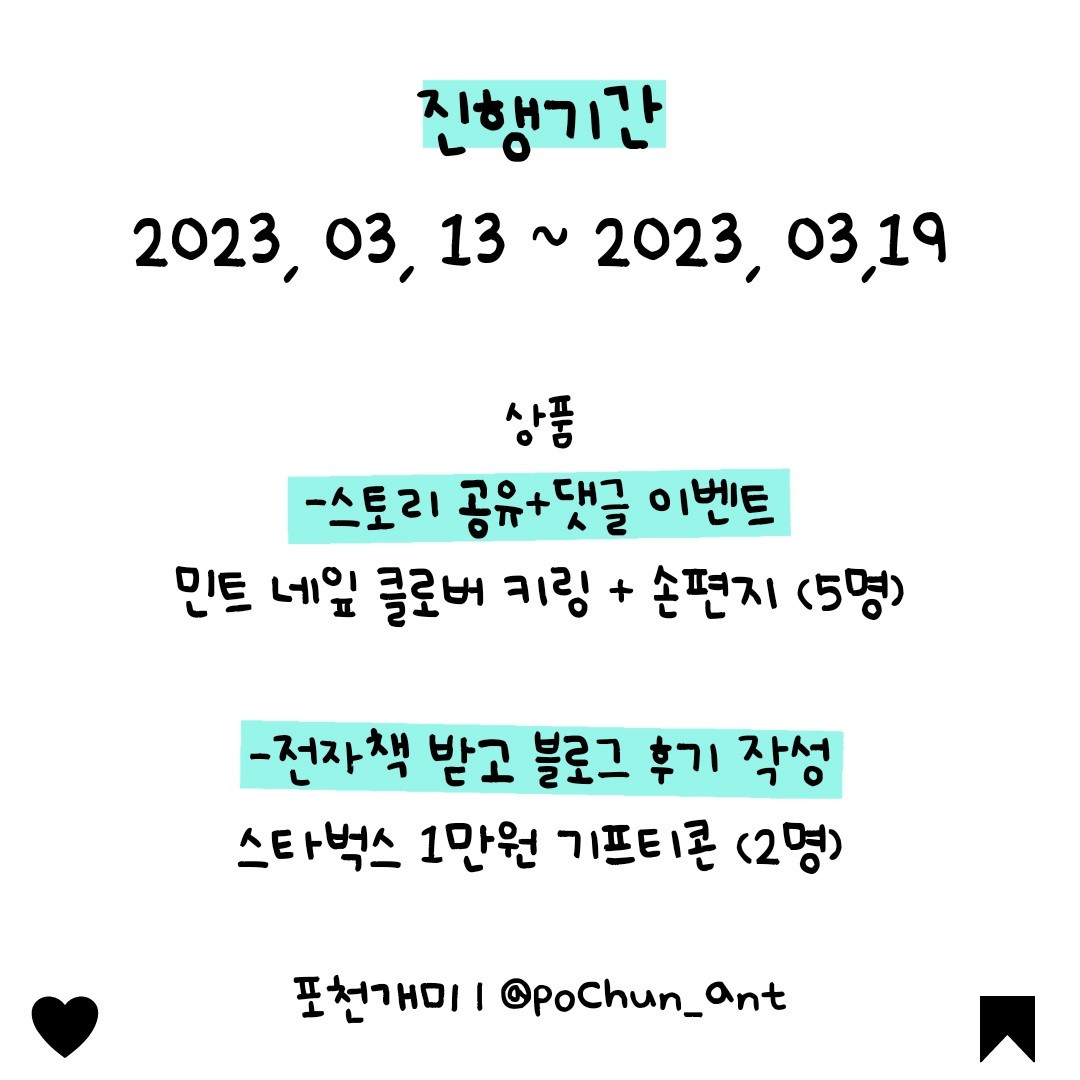 진행기간
2023, 03, 13 ~ 2023, 03,19
상품
-스토리 공유+댓글 이벤트
민트 네잎 클로버 키링 + 손편지 (5명)
-전자책 받고 블로그 후기 작성
스타벅스 1만원 기프티콘 (2명)
포천개미 | @poChun_ant